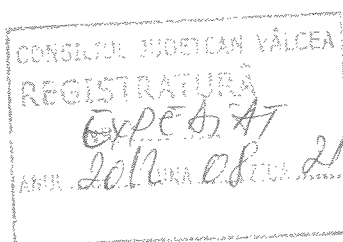 CONSILIUL JUDEȚEAN VÂLCEA
REGISTRATURĂ
EXPEDIAT
ANUL 2012 LUNA 08 ZIUA 21